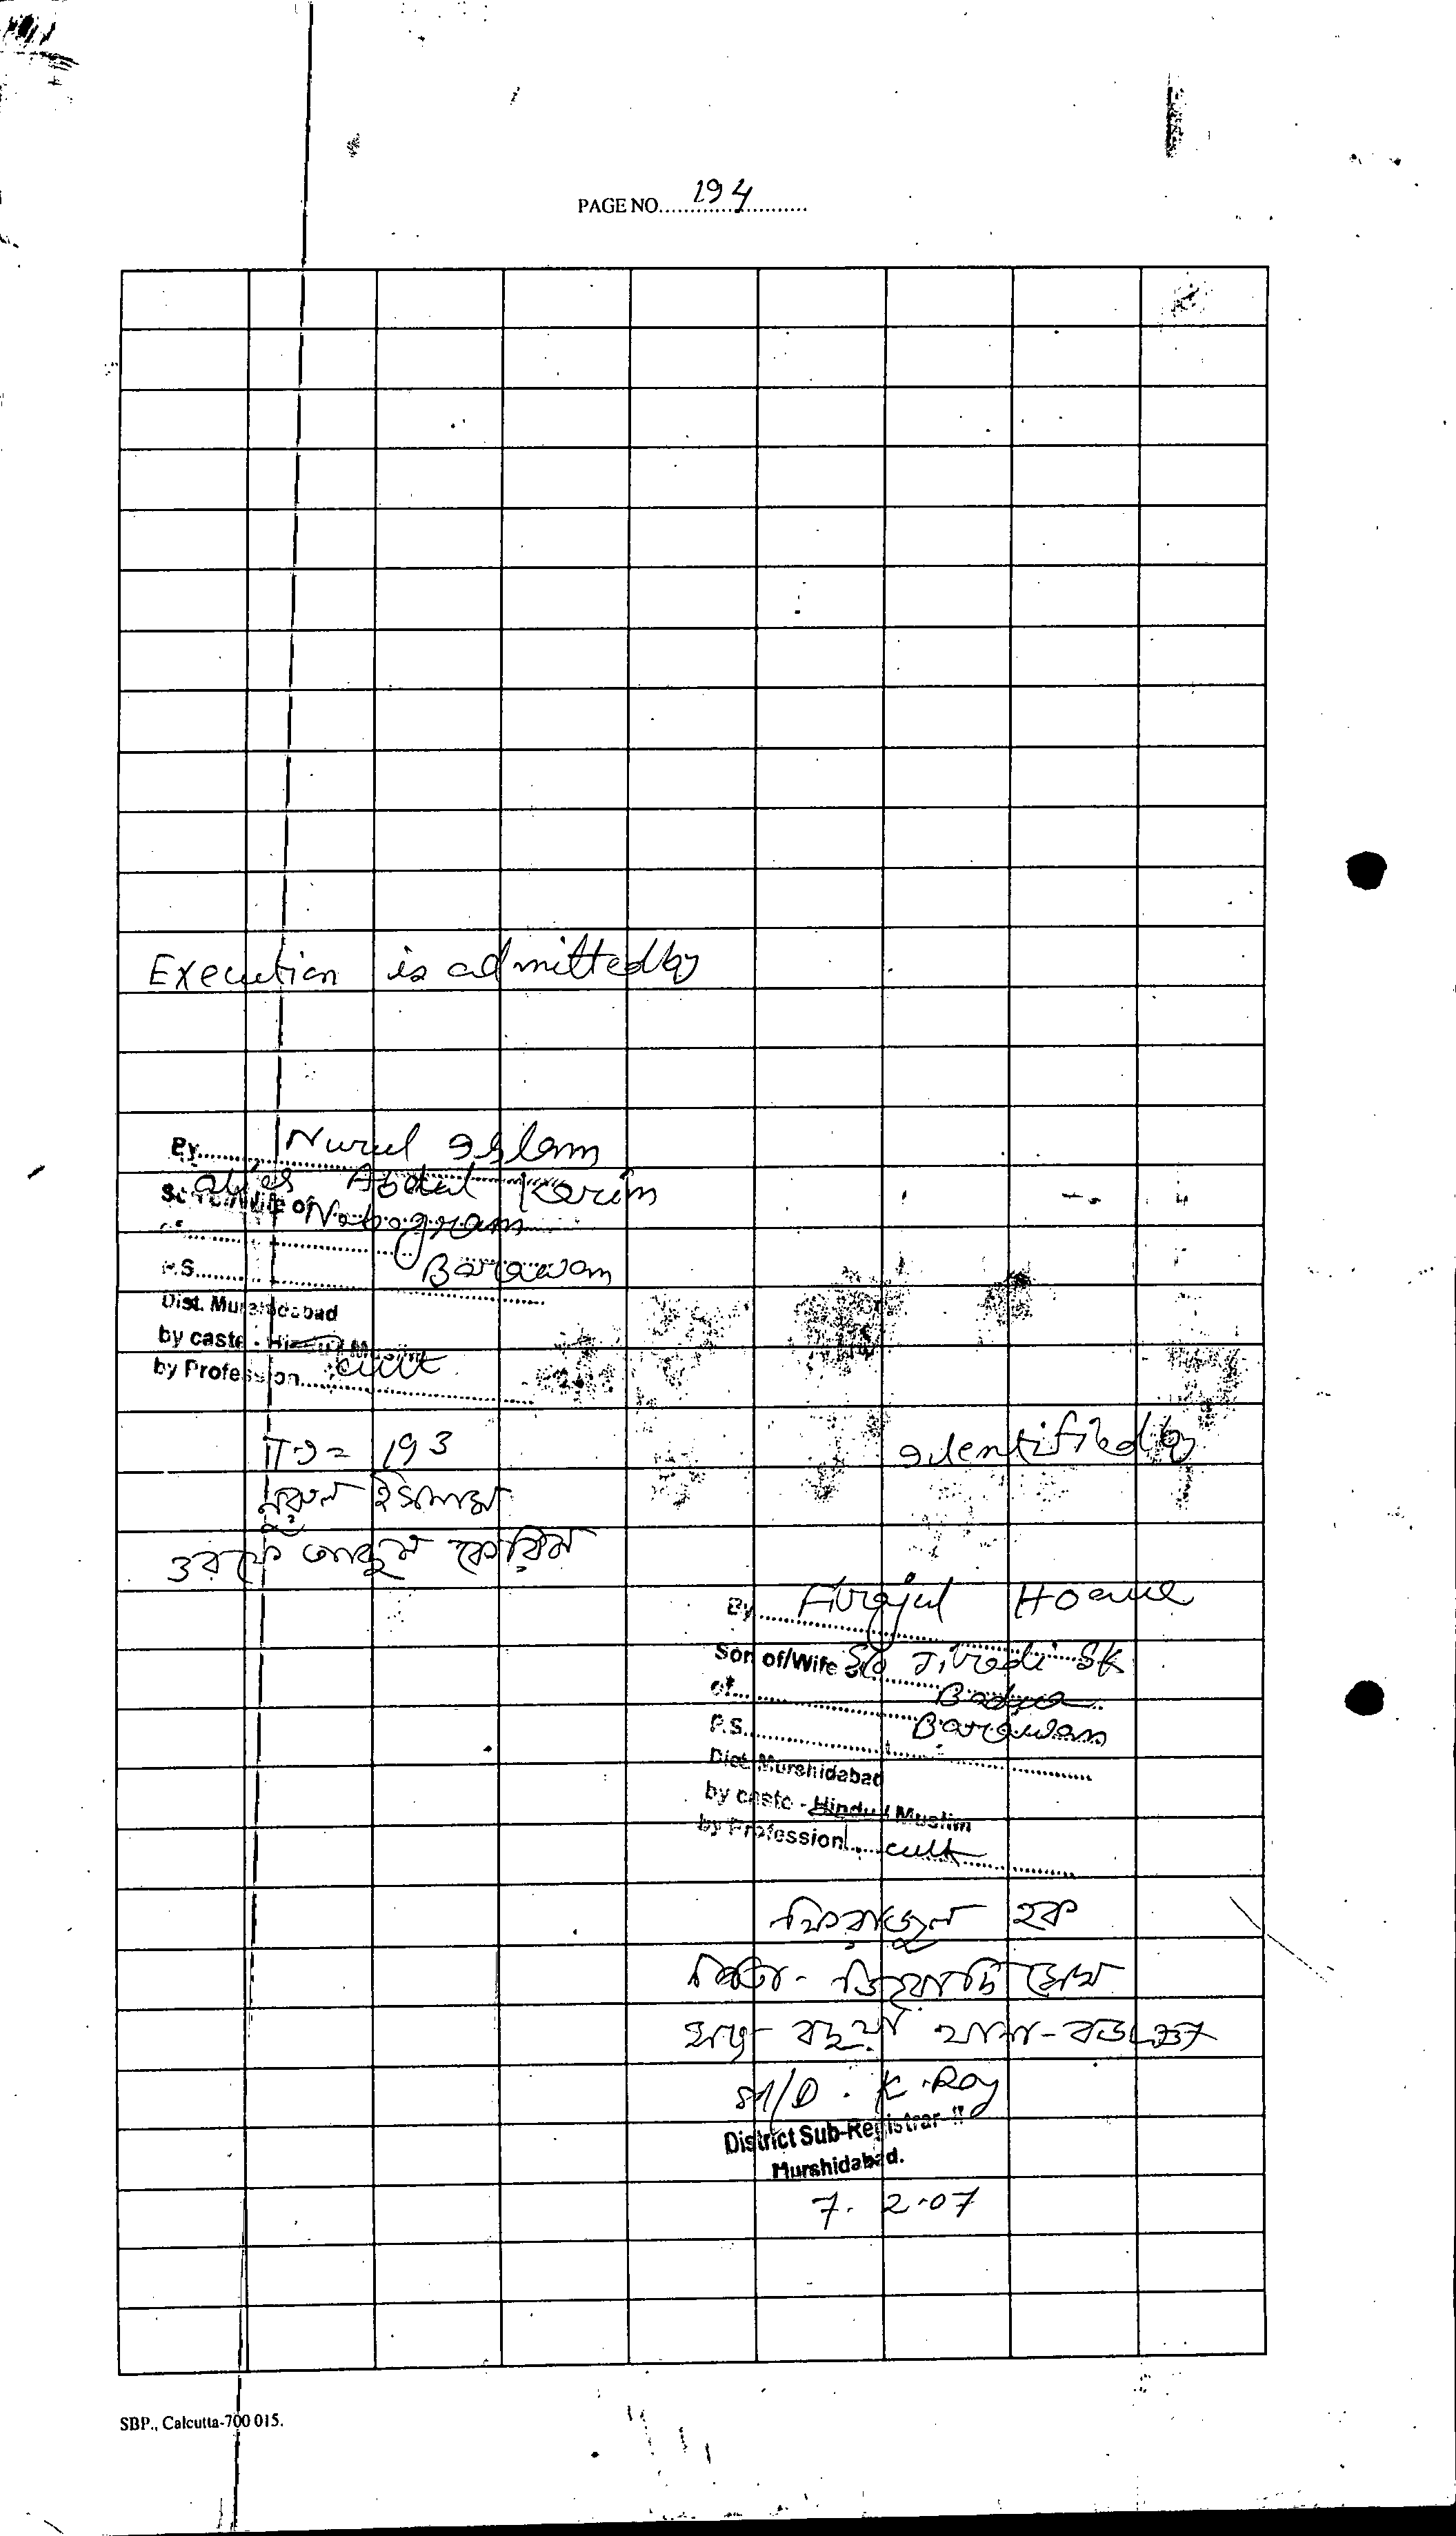 PAGE NO. 194
Execution is admitted by
By Nurul Islam
alies Abdul Karim
Son of/Wife of Nabogram
of
P.S. Barawan
Dist. Murshidabad
by caste - Hindu / Muslim
by Profession cult
193
Identified by
নুরুল ইসলাম
ওরফে আব্দুল কেরিম
By Firajul Hoque
Son of/Wife of S/o Jibodi SK
of Badua
P.S. Barawan
Dist. Murshidabad
by caste - Hindu / Muslim
by Profession cult
ফিরাজুল হক
পিতা- জিবাদি সেখ
থানা-
Sd/ D. K. Roy
District Sub-Registrar-II
Murshidabad.
7. 2.07
SBP., Calcutta-700 015.